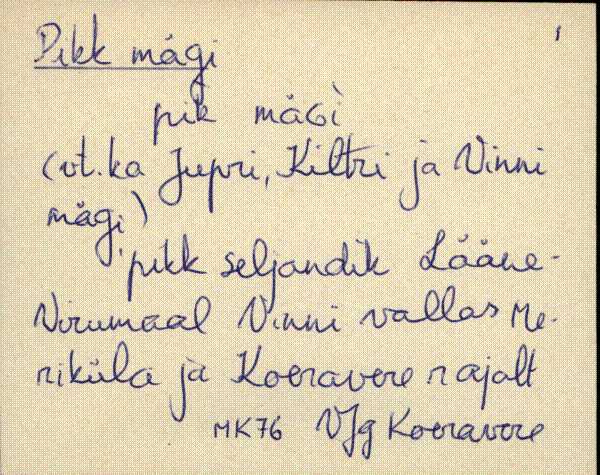 Pikk mägi 1
pik mäGì
(vt. ka Jupri, Kiltri ja Vinni
mägi)
pikk seljandik Lääne-
Virumaal Vinni vallas Me-
riküla ja Koeravere rajalt
MK76 VJg Koeravere